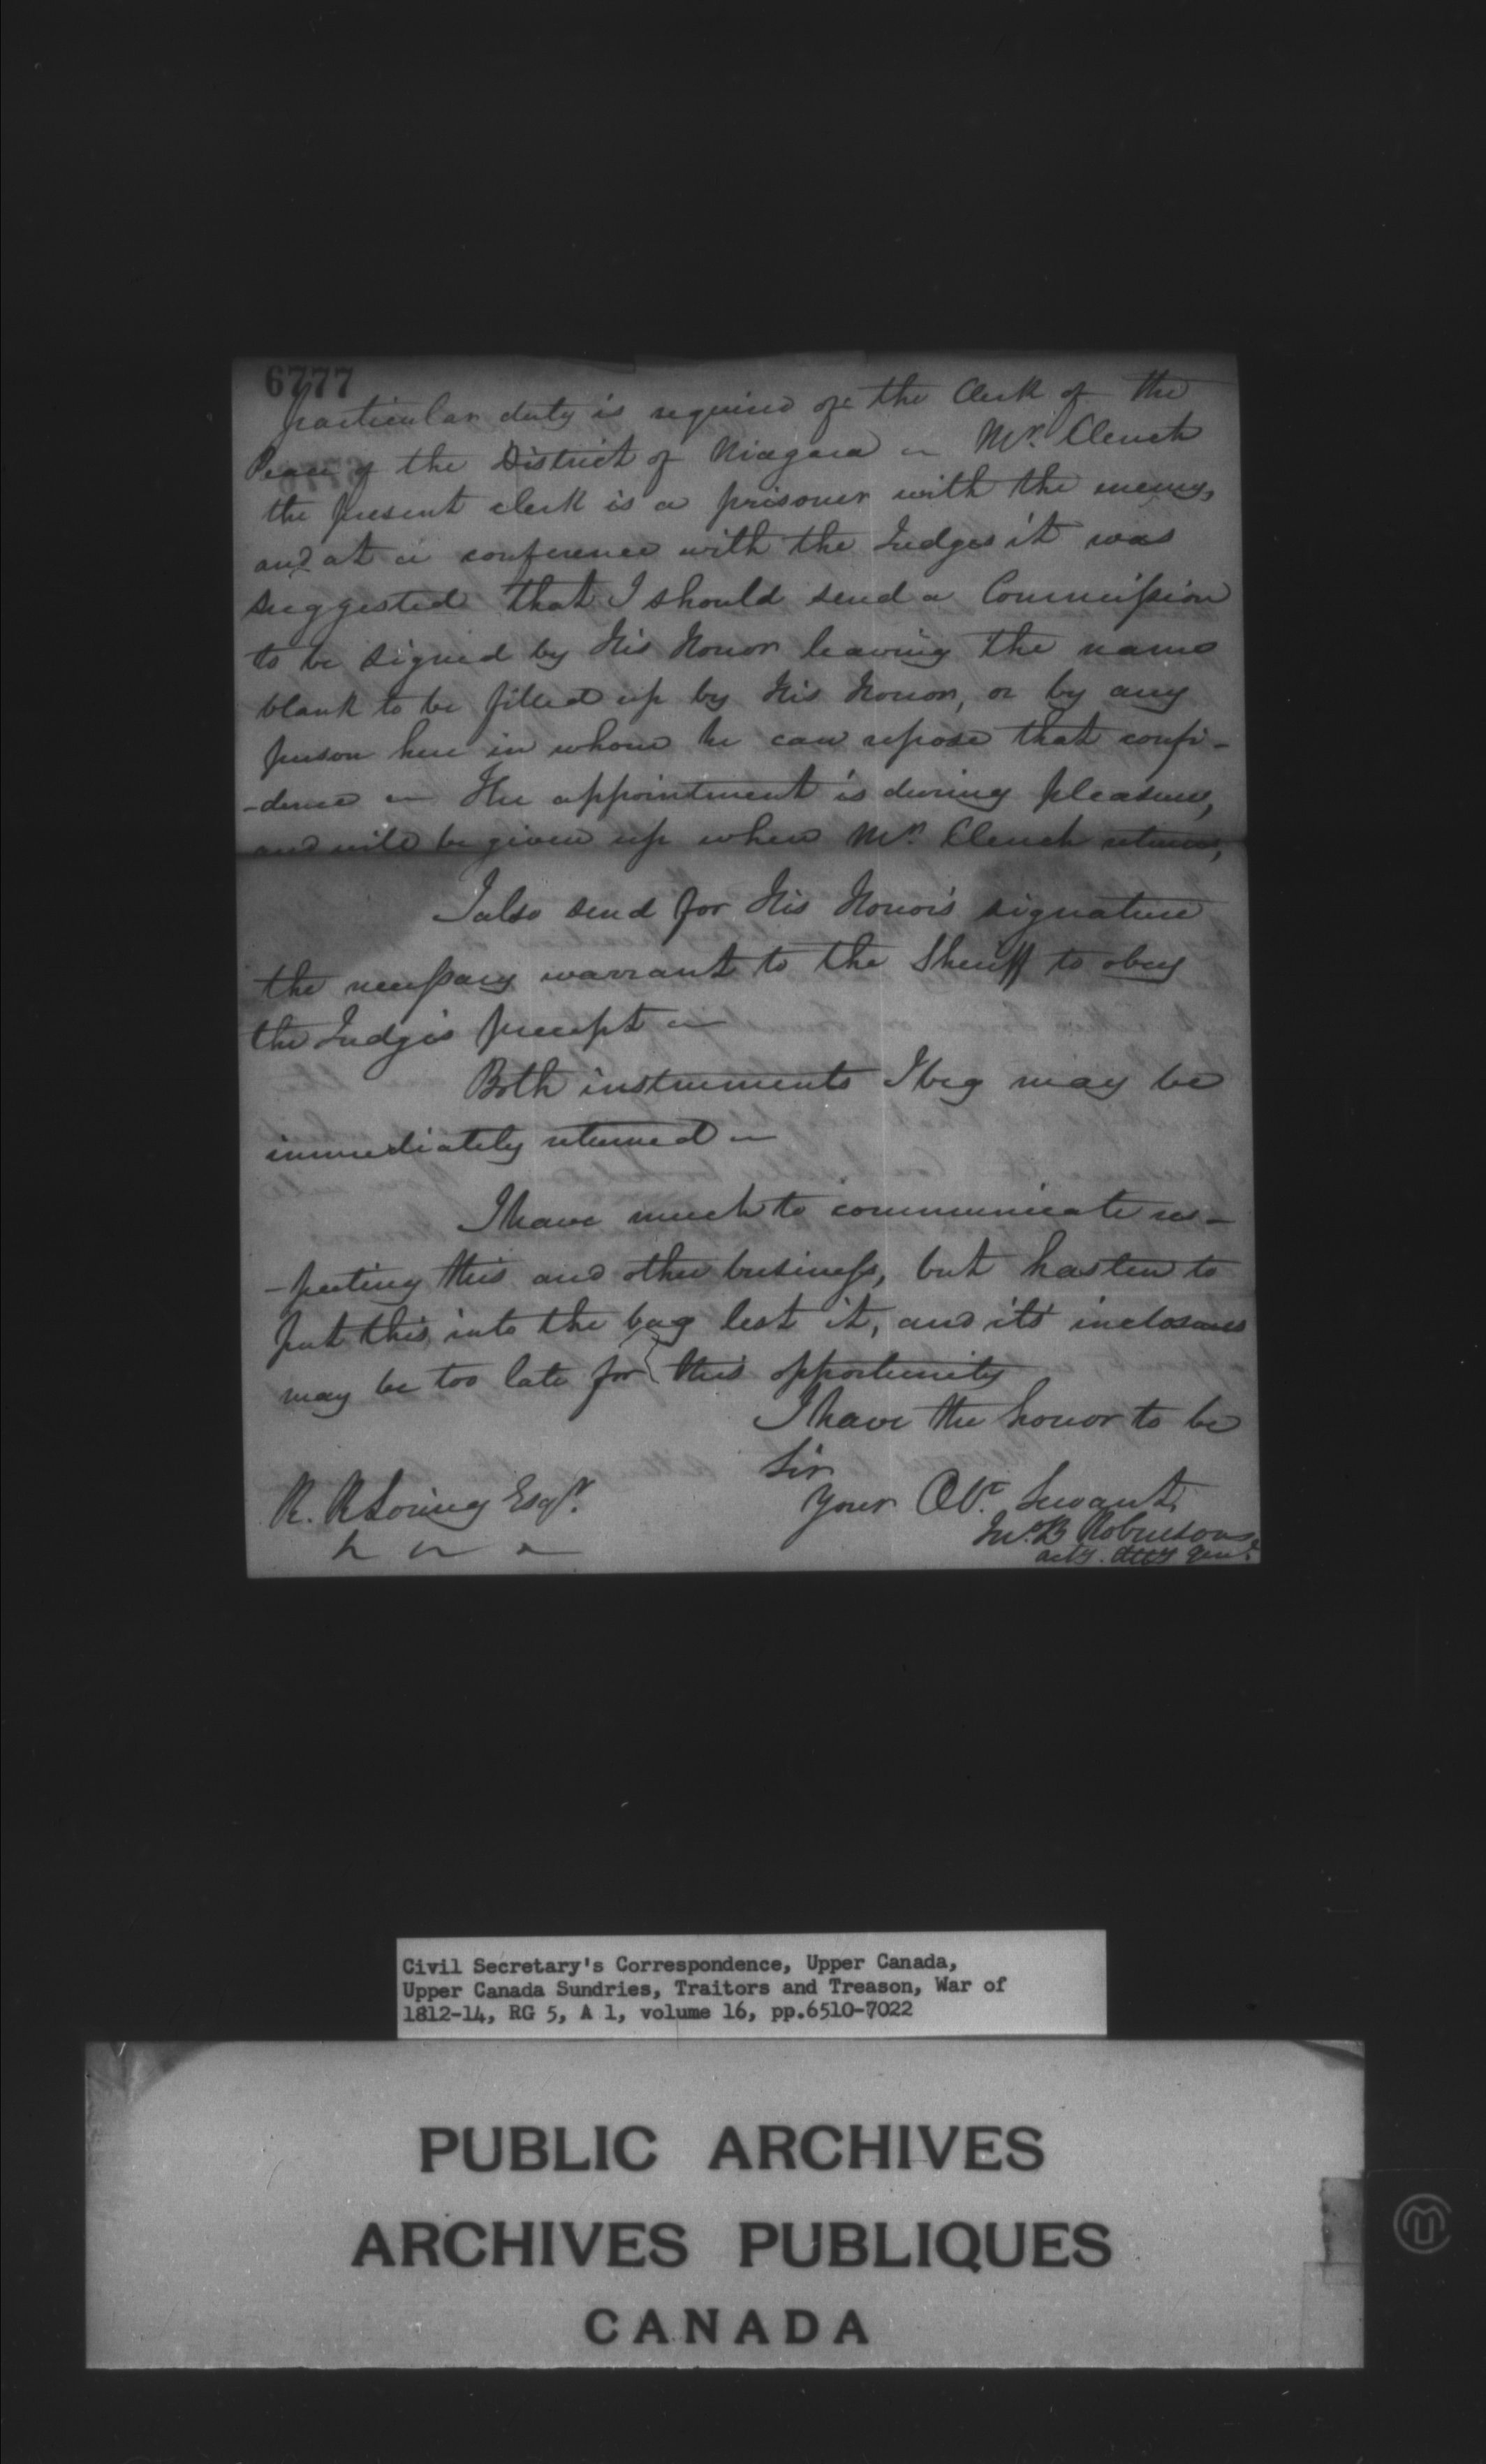 6777
particular duty is required of the Clerk of the
Peace of the District of Niagara — Mr. Clench
the present clerk is a prisoner with the enemy,
and at a conference with the Judges it was
suggested that I should send a Commission
to be signed by His Honor leaving the name
blank to be filled up by His Honor, or by any
person here in whom he can repose that confi-
-dence — The appointment is during pleasure,
and will be given up when Mr. Clench returns,
I also send for His Honor's signature
the necessary warrant to the Sheriff to obey
the Judges precept —
Both instruments I beg may be
immediately returned —
I have much to communicate res-
-pecting this and other business, but hasten to
put this into the bag lest it, and its inclosures
may be too late for this opportunity
I have the honor to be
Sir
Your Obt. Servant,
R. R Loring Esqr.
Jno. B Robinson
actg. Atty Genl.
Civil Secretary's Correspondence, Upper Canada,
Upper Canada Sundries, Traitors and Treason, War of
1812-14, RG 5, A 1, volume 16, pp.6510-7022
PUBLIC ARCHIVES
ARCHIVES PUBLIQUES
CANADA